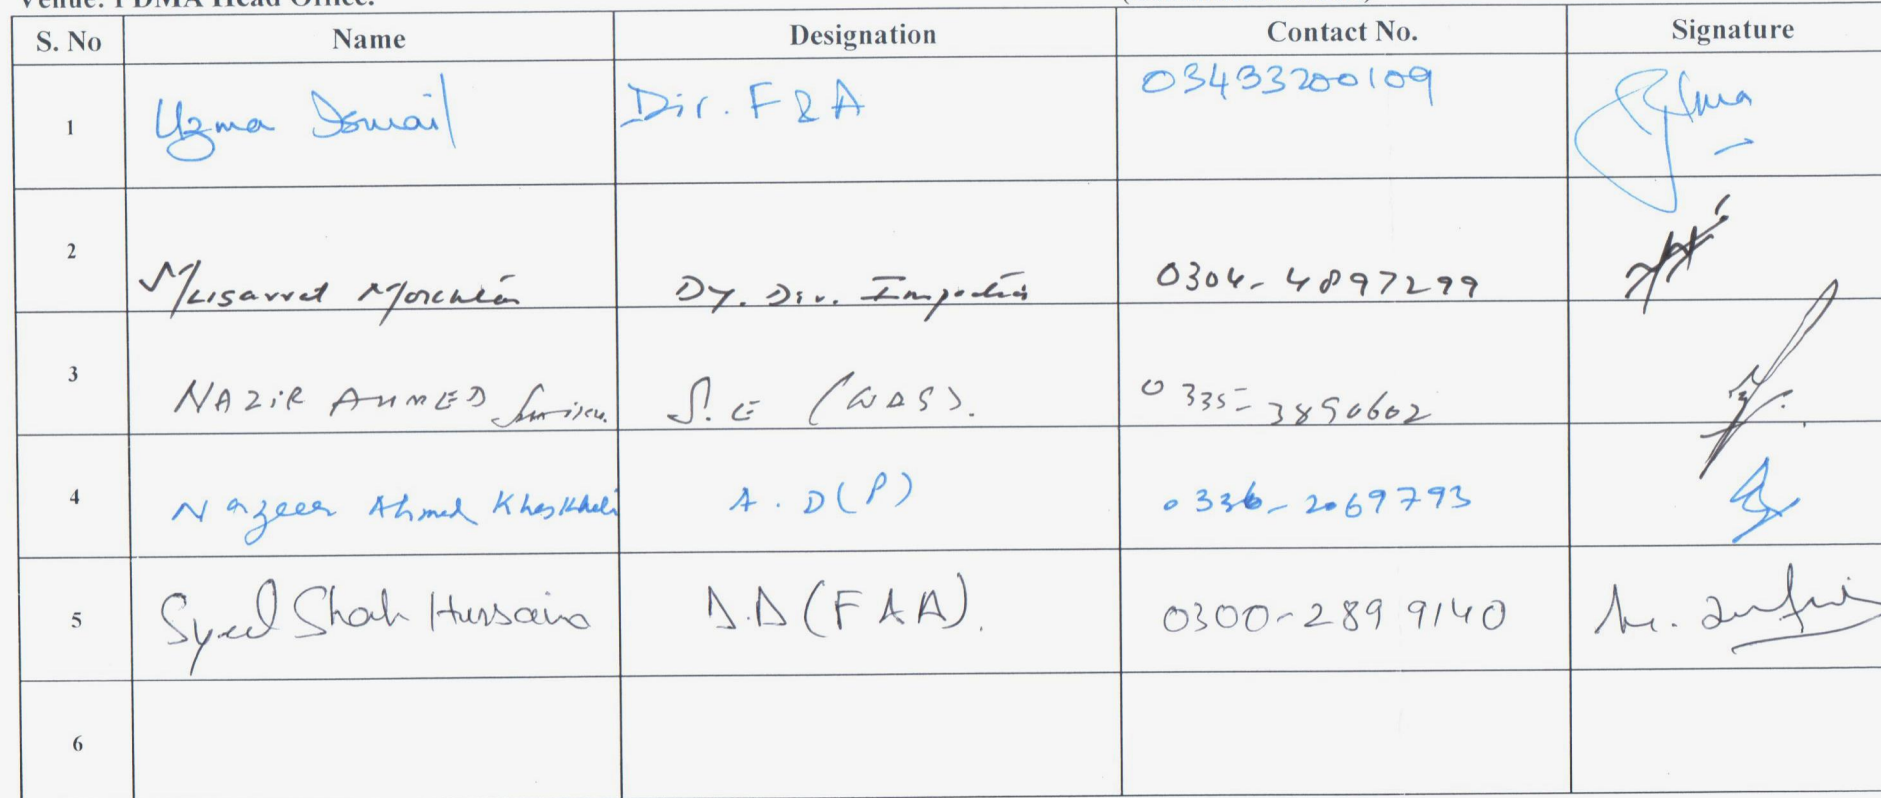 Venue: PDMA Head Office.
S. No Name Designation Contact No. Signature
1 Uzma Ismail Dir. F&A 03433200109
2 Musarrat Dy. Dir. 0304-4897299
3 NAZIR AHMED S.E 0335-3890602
4 Nazeer Ahmed Khaskheli A.D(P) 0336-2069793
5 Syed Shah Hussain D.D (F&A). 0300-2899140
6